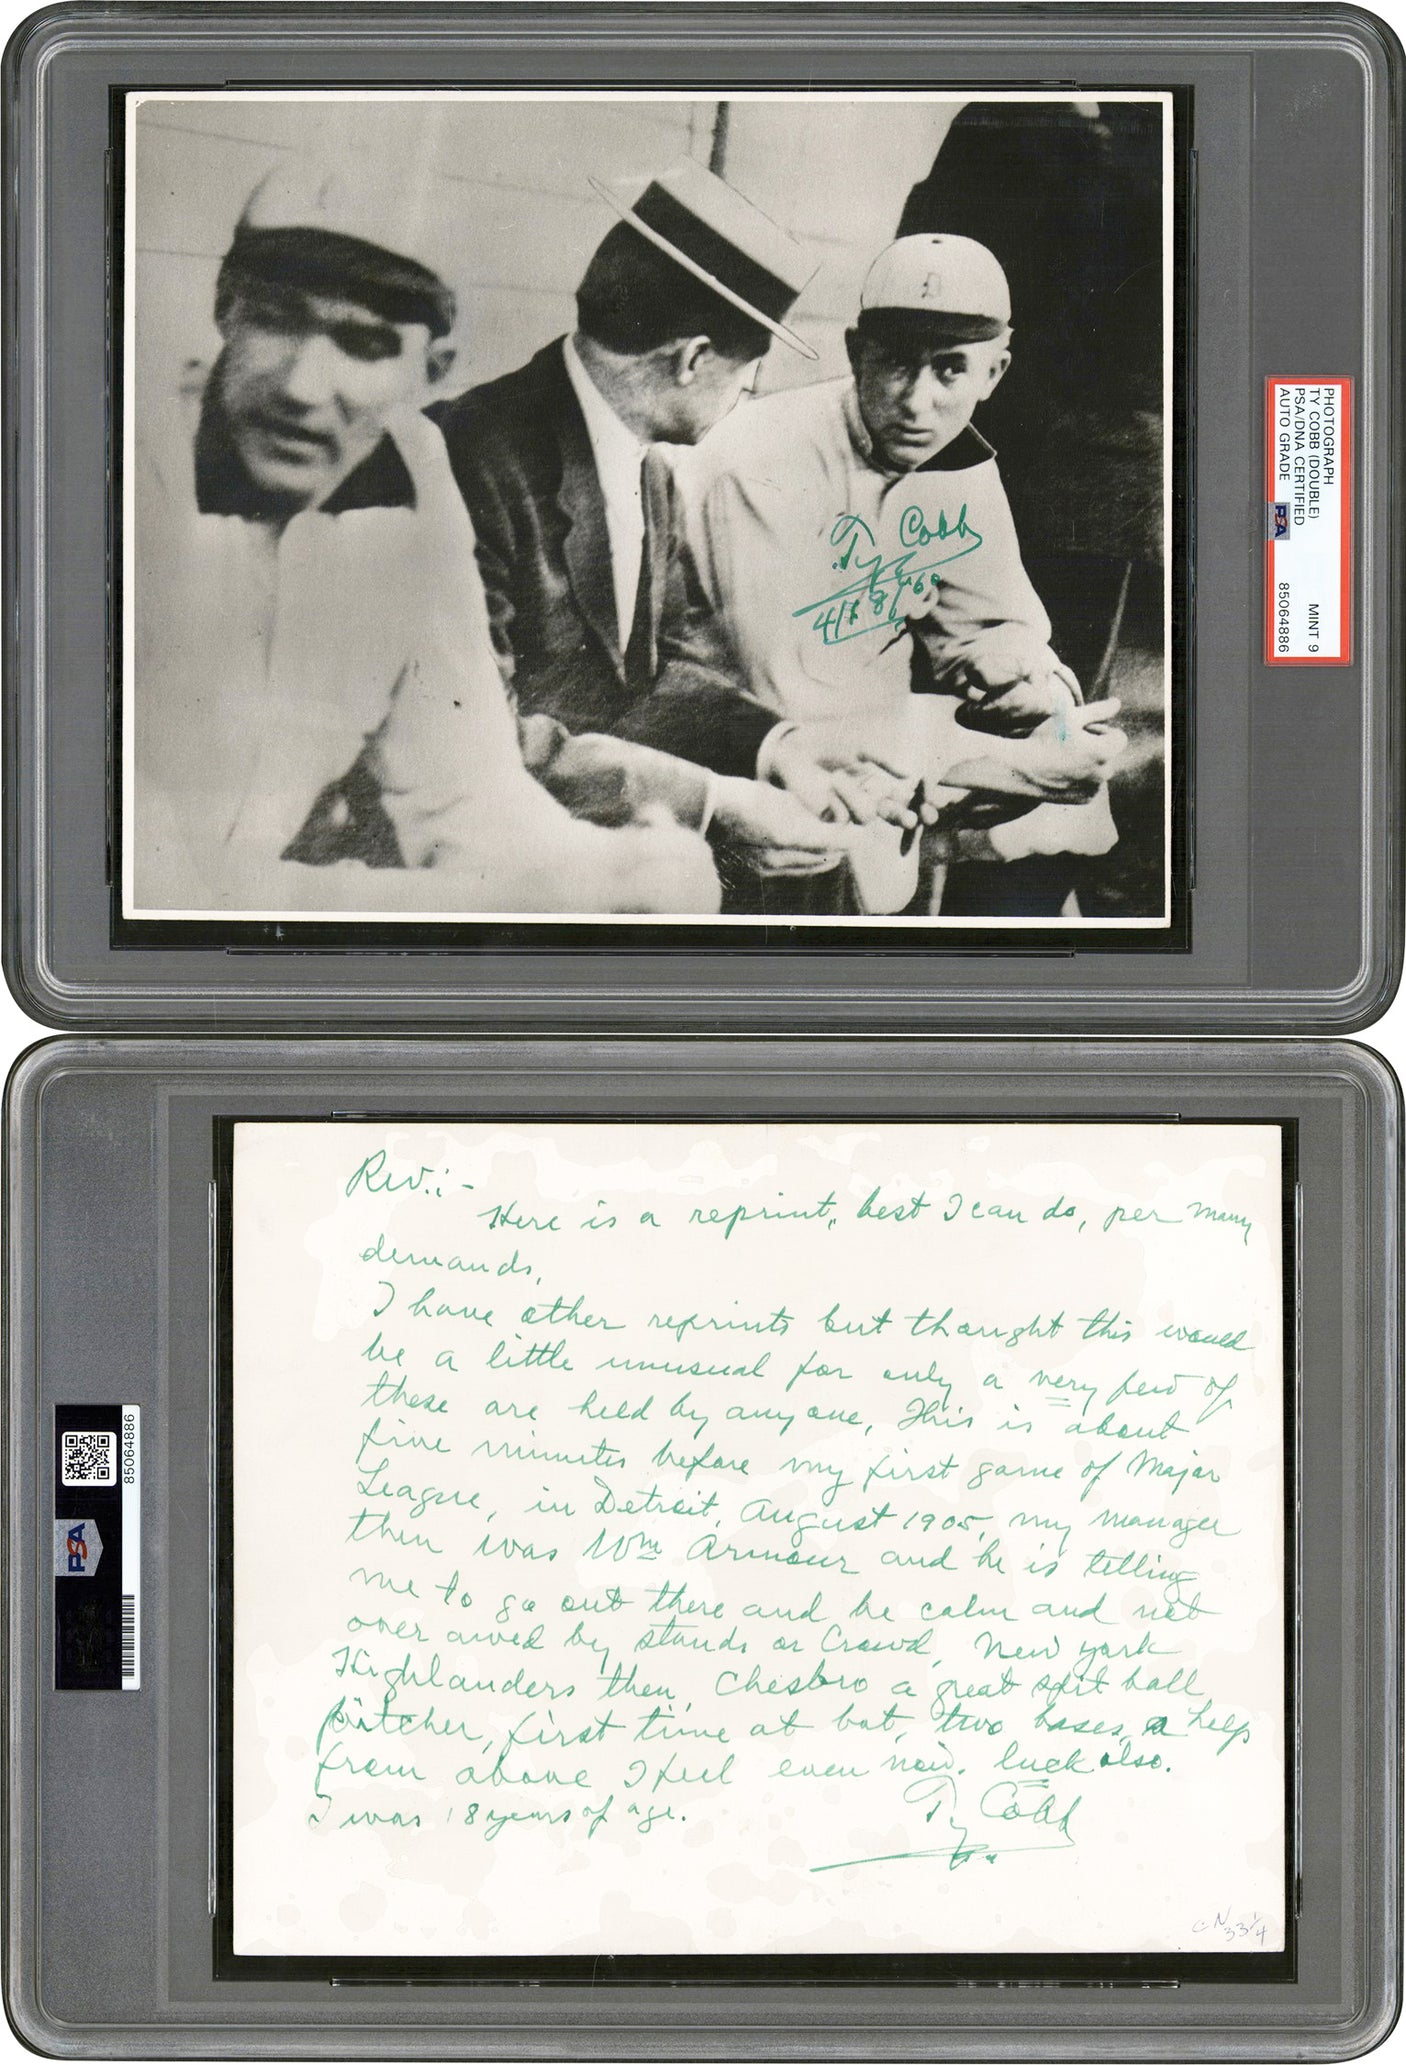 PHOTOGRAPH
TY COBB (DOUBLE)
PSA/DNA CERTIFIED
AUTO GRADE
MINT 9
85064886
PSA
D
Ty Cobb
Rev.:-
Here is a reprint, best I can do, per many
demands.
I have other reprints but thought this would
be a little unusual for only a very few of
these are held by anyone, This is about
five minutes before my first game of Major
League, in Detroit, August 1905, my manager
then was Wm Armour and he is telling
me to go out there and be calm and not
over awed by stands or Crowd, New York
Highlanders then, Chesbro a great spit ball
pitcher, first time at bat, two bases, a help
from above I feel even now. luck also.
I was 18 years of age.
Ty Cobb
85064886
PSA